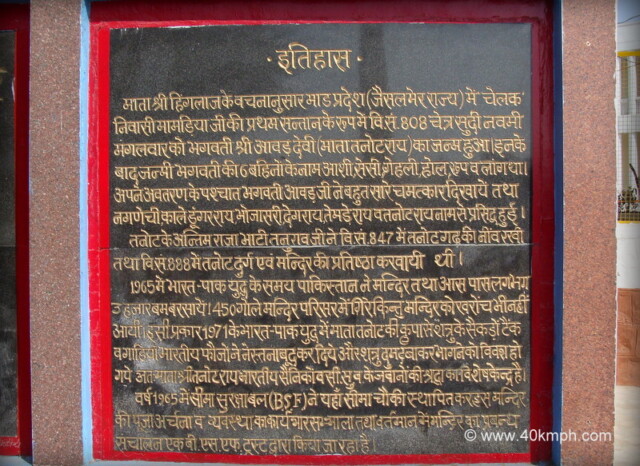 · इतिहास ·
माता श्री हिंगलाज के वचनानुसार माड प्रदेश (जैसलमेर राज्य) में चेलक
निवासी मामड़िया जी की प्रथम सन्तान के रूप में वि.सं. 808 चेत्र सुदी नवमी
मंगलवार को भगवती श्री आवड़ देवी (माता तनोट राय) का जन्म हुआ। इनके
बाद जन्मी भगवती की 6 बहिनो के नाम आशी, सेसी, गेहली, होल, रूप व लांग था।
अपने अवतरण के पश्चात भगवती आवड़ जी ने बहुत सारे चमत्कार दिखाये तथा
नगणेची, काले डूंगरराय, भोजासरी, देगराय, तेमड़ेराय व तनोट राय नाम से प्रसिद्ध हुई।
तनोट के अन्तिम राजा भाटी तनुराव जी ने वि.सं. 847 में तनोट गढ़ की नींव रखी
तथा वि.सं. 888 में तनोट दुर्ग एवं मन्दिर की प्रतिष्ठा करवायी थी।
1965 में भारत-पाक युद्ध के समय पाकिस्तान ने मन्दिर तथा आस पास लगभग
हजार बम बरसाये। 450 गोले मन्दिर परिसर में गिरे किन्तु मन्दिर को खरोंच भी नहीं
आयी। इसी प्रकार 1971 के भारत-पाक युद्ध में माता तनोट की कृपा से शत्रु के सैकड़ों टैंक
व गाड़िया भारतीय फौजों ने नेस्तनाबूद कर दिये और शत्रु दुम दबाकर भागने को विवश हो
गये अतः माता श्री तनोट राय भारतीय सैनिकों व सी.सु.ब. के जवानों की श्रद्धा का विशेष केन्द्र है।
वर्ष 1965 में सीमा सुरक्षा बल (BSF) ने यहाँ सीमा चौकी स्थापित कर इस मन्दिर
की पूजा अर्चना व व्यवस्था का कार्यभार सम्भाला तथा वर्तमान में मन्दिर का प्रबन्ध
संचालन एक बी. एस. एफ. ट्रस्ट द्वारा किया जा रहा है।
© www.40kmph.com